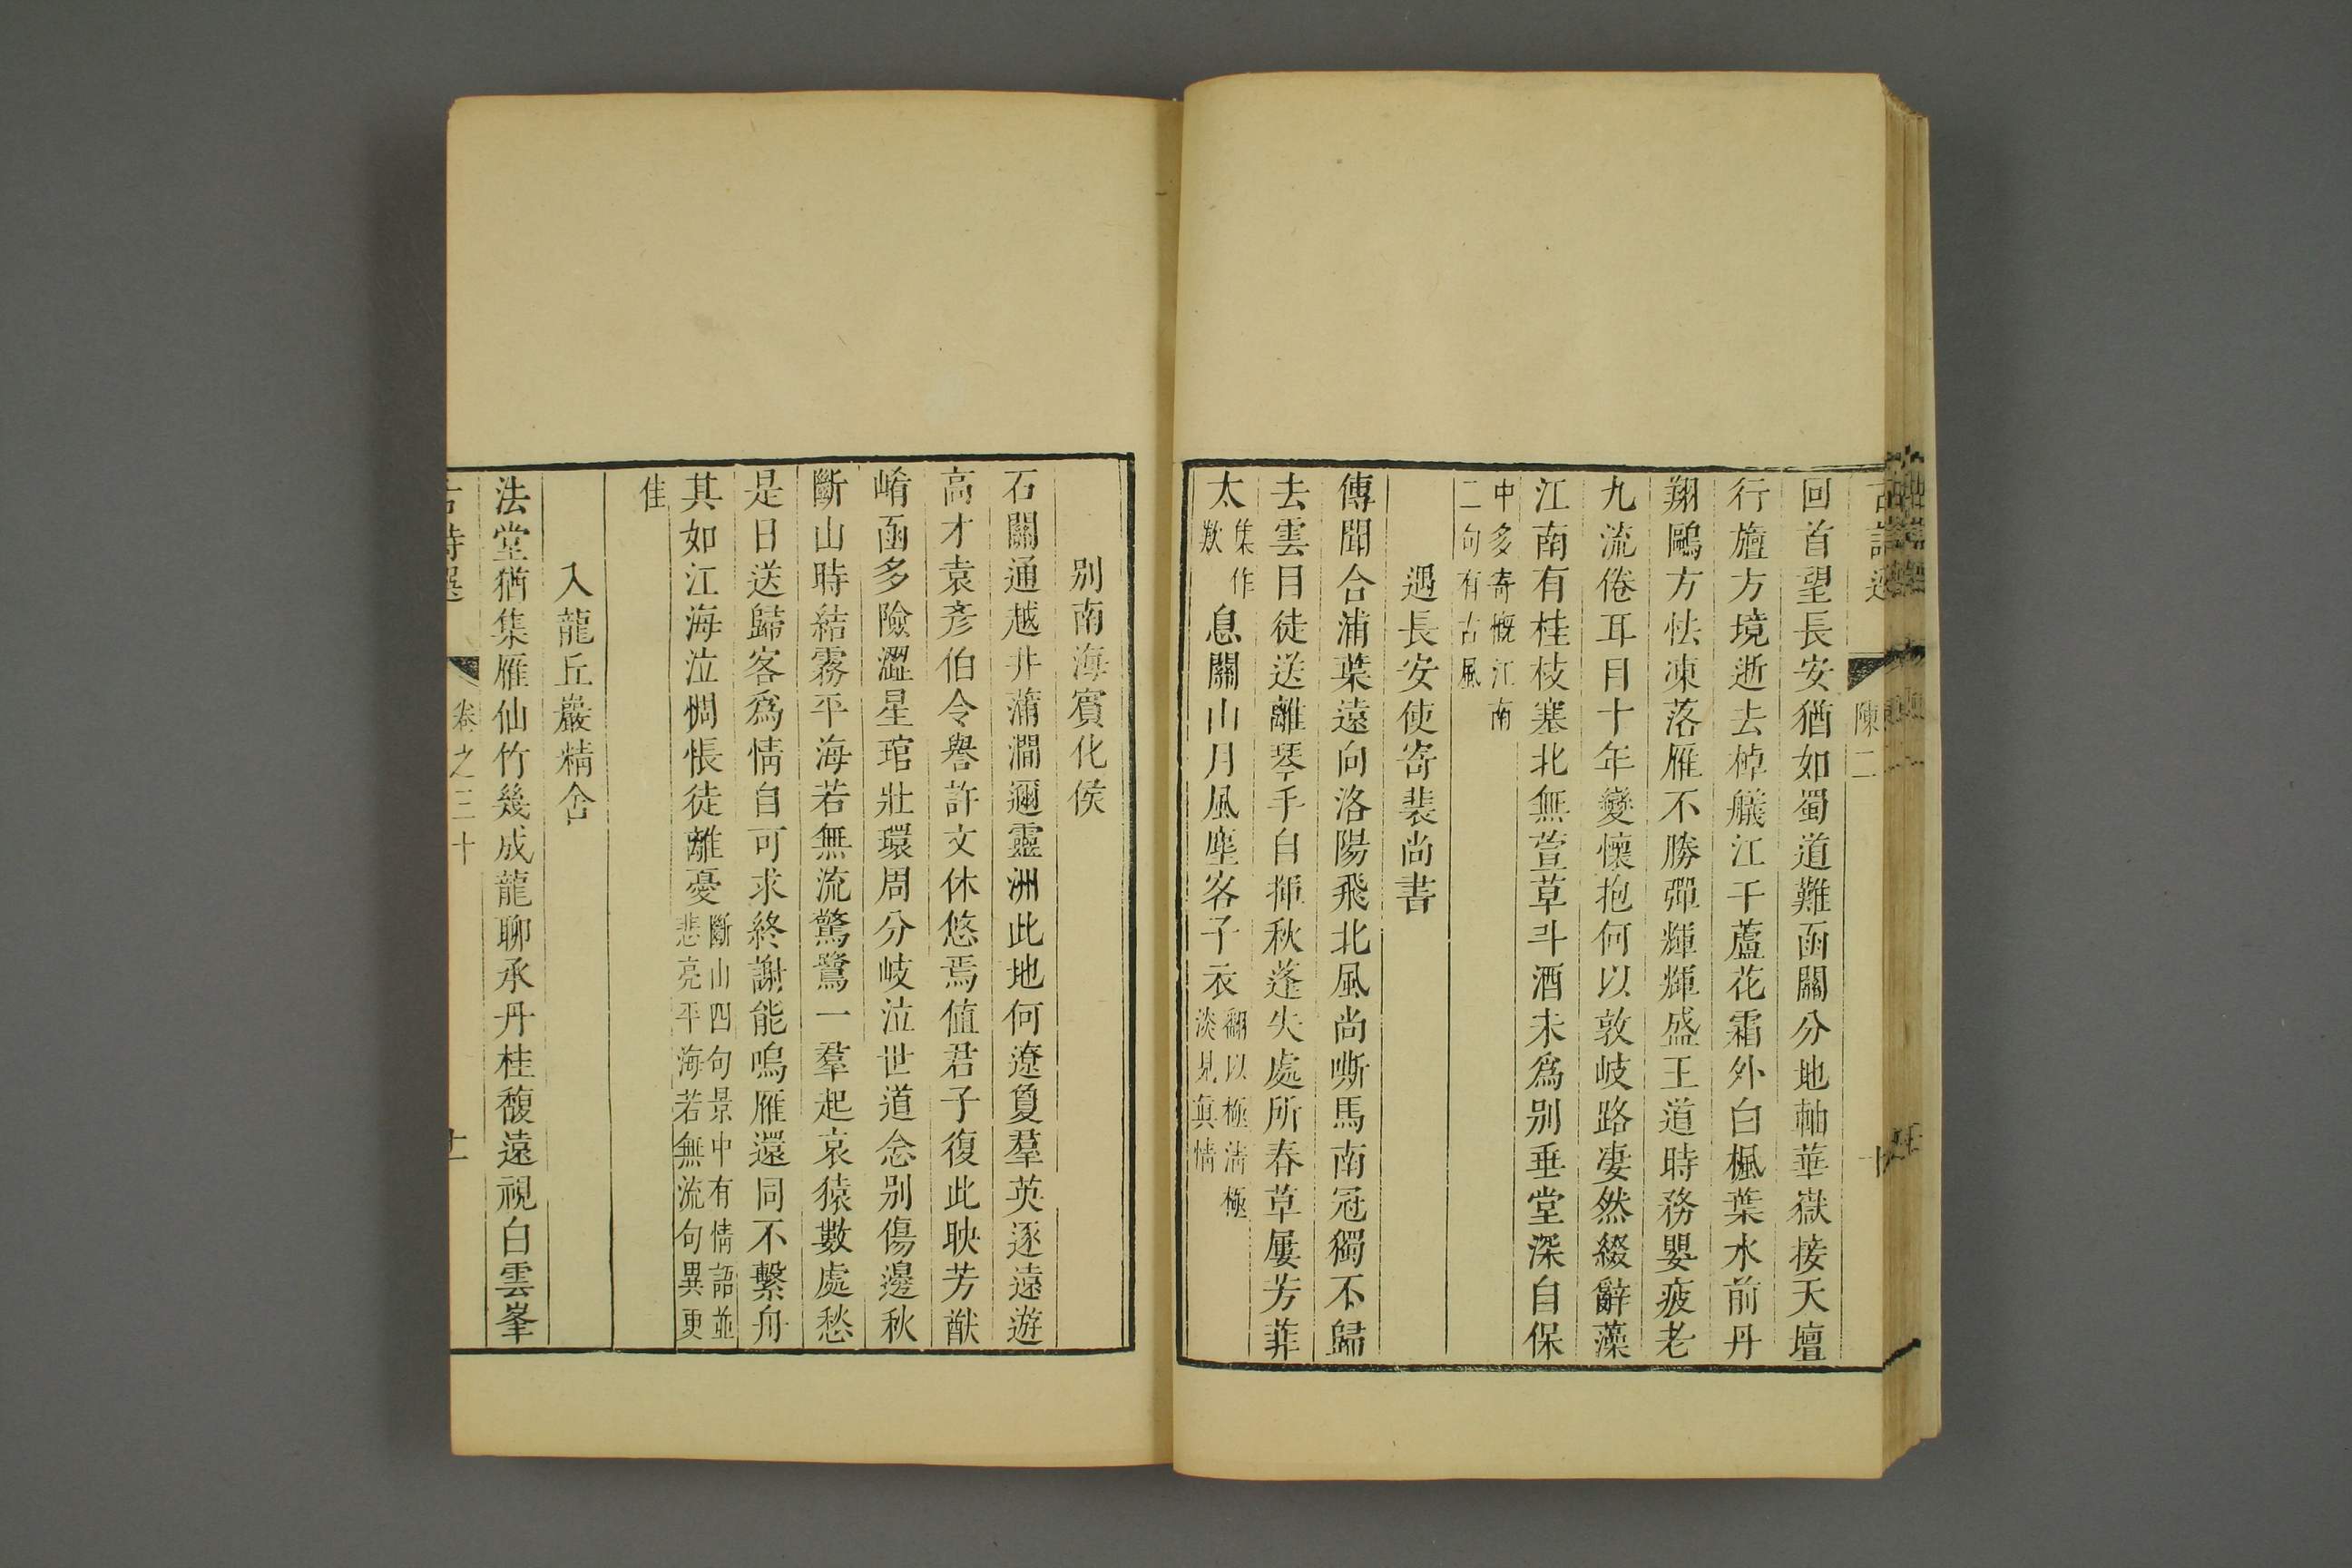 陳二
回首望長安猶如蜀道難函關分地軸華嶽接天壇
行旜方境逝去棹艤江干蘆花霜外白楓葉水前丹
翔鷗方怯凍落雁不勝彈輝輝盛王道時務嬰疲老
九流倦耳目十年變懷抱何以敦岐路凄然綴辭藻
江南有桂枝塞北無萱草斗酒未為别垂堂深自保
中多寄慨江南
二句有古風
遇長安使寄裴尚書
傳聞合浦葉遠向洛陽飛北風尚嘶馬南冠獨不歸
去雲目徒送離琴手自揮秋蓬失處所春草屢芳菲
太集作歎息關山月風塵客子衣翻以極清極淡見真情
别南海賓化侯
石關通越井蒲澗邇靈洲此地何遼夐羣英逐遠遊
高才袁彥伯令譽許文休悠焉值君子復此映芳猷
崤函多險澀星琯壯環周分岐泣世道念别傷邊秋
斷山時結霧平海若無流驚鷺一羣起哀猿數處愁
是日送歸客為情自可求終謝能鳴雁還同不繫舟
其如江海泣惆悵徒離憂斷山四句景中有情語並悲亮平海若無流句異更
佳
入龍丘巖精舍
法堂猶集雁仙竹幾成龍聊承丹桂馥遠視白雲峯
古詩選 卷之三十